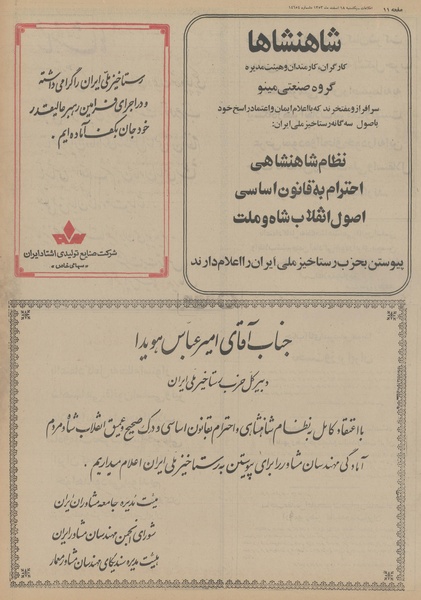 صفحه ۱۱
شاهنشاها
کارگران، کارمندان و هیئت مدیره
گروه صنعتی مینو
سرافراز و مفتخرند که با اعلام ایمان و اعتماد راسخ خود
باصول سه گانه رستاخیز ملی ایران:
نظام شاهنشاهی
احترام به قانون اساسی
اصول انقلاب شاه و ملت
پیوستن بحزب رستاخیز ملی ایران را اعلام دارند
رستاخیز ملی ایران را گرامی داشته
و در اجرای فرامین رهبر عالیقدر
خود جان بکف آماده ایم .
شرکت صنایع تولیدی اشتاد ایران
«سهامی خاص»
جناب آقای امیر عباس هویدا
دبیر کل حزب رستاخیز ملی ایران
با اعتقاد کامل به نظام شاهنشاهی و احترام بقانون اساسی و درک صحیح و عمیق انقلاب شاه و مردم
آمادگی مهندسان مشاور را برای پیوستن به رستاخیز ملی ایران اعلام میداریم .
هیئت مدیره جامعه مشاوران ایران
شورای انجمن مهندسان مشاور ایران
هیئت مدیره سندیکای مهندسان مشاور معمار